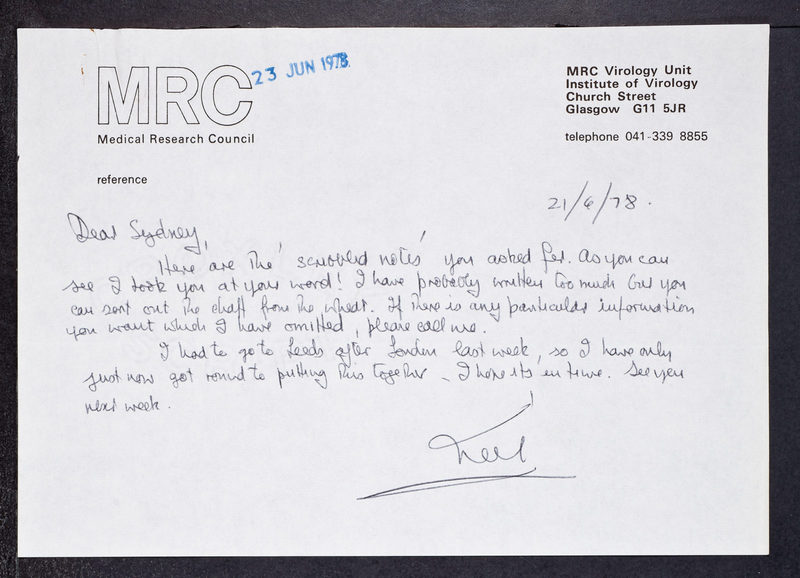 MRC
Medical Research Council
23 JUN 1978
MRC Virology Unit
Institute of Virology
Church Street
Glasgow G11 5JR
telephone 041-339 8855
reference
21/6/78.
Dear Sydney,
Here are the 'scribbled notes' you asked for. As you can
see I took you at your word! I have probably written too much but you
can sort out the chaff from the wheat. If there is any particular information
you want which I have omitted, please call me.
I had to go to Leeds after London last week, so I have only
just now got round to putting this together - I hope its in time. See you
next week.